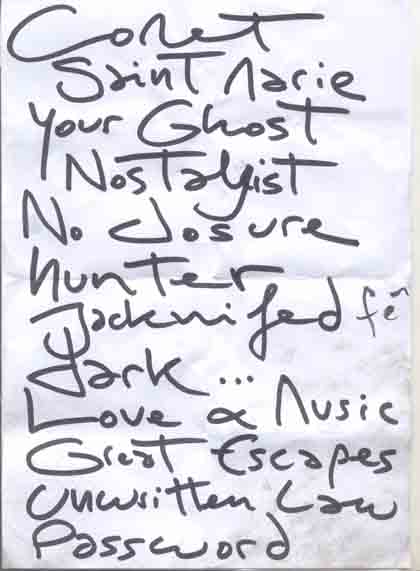 Comet
Saint Marie
Your Ghost
Nostalgist
No Closure
Hunter
Jacknifed
Dark...
Love & Music
Great Escapes
Unwritten Law
Password